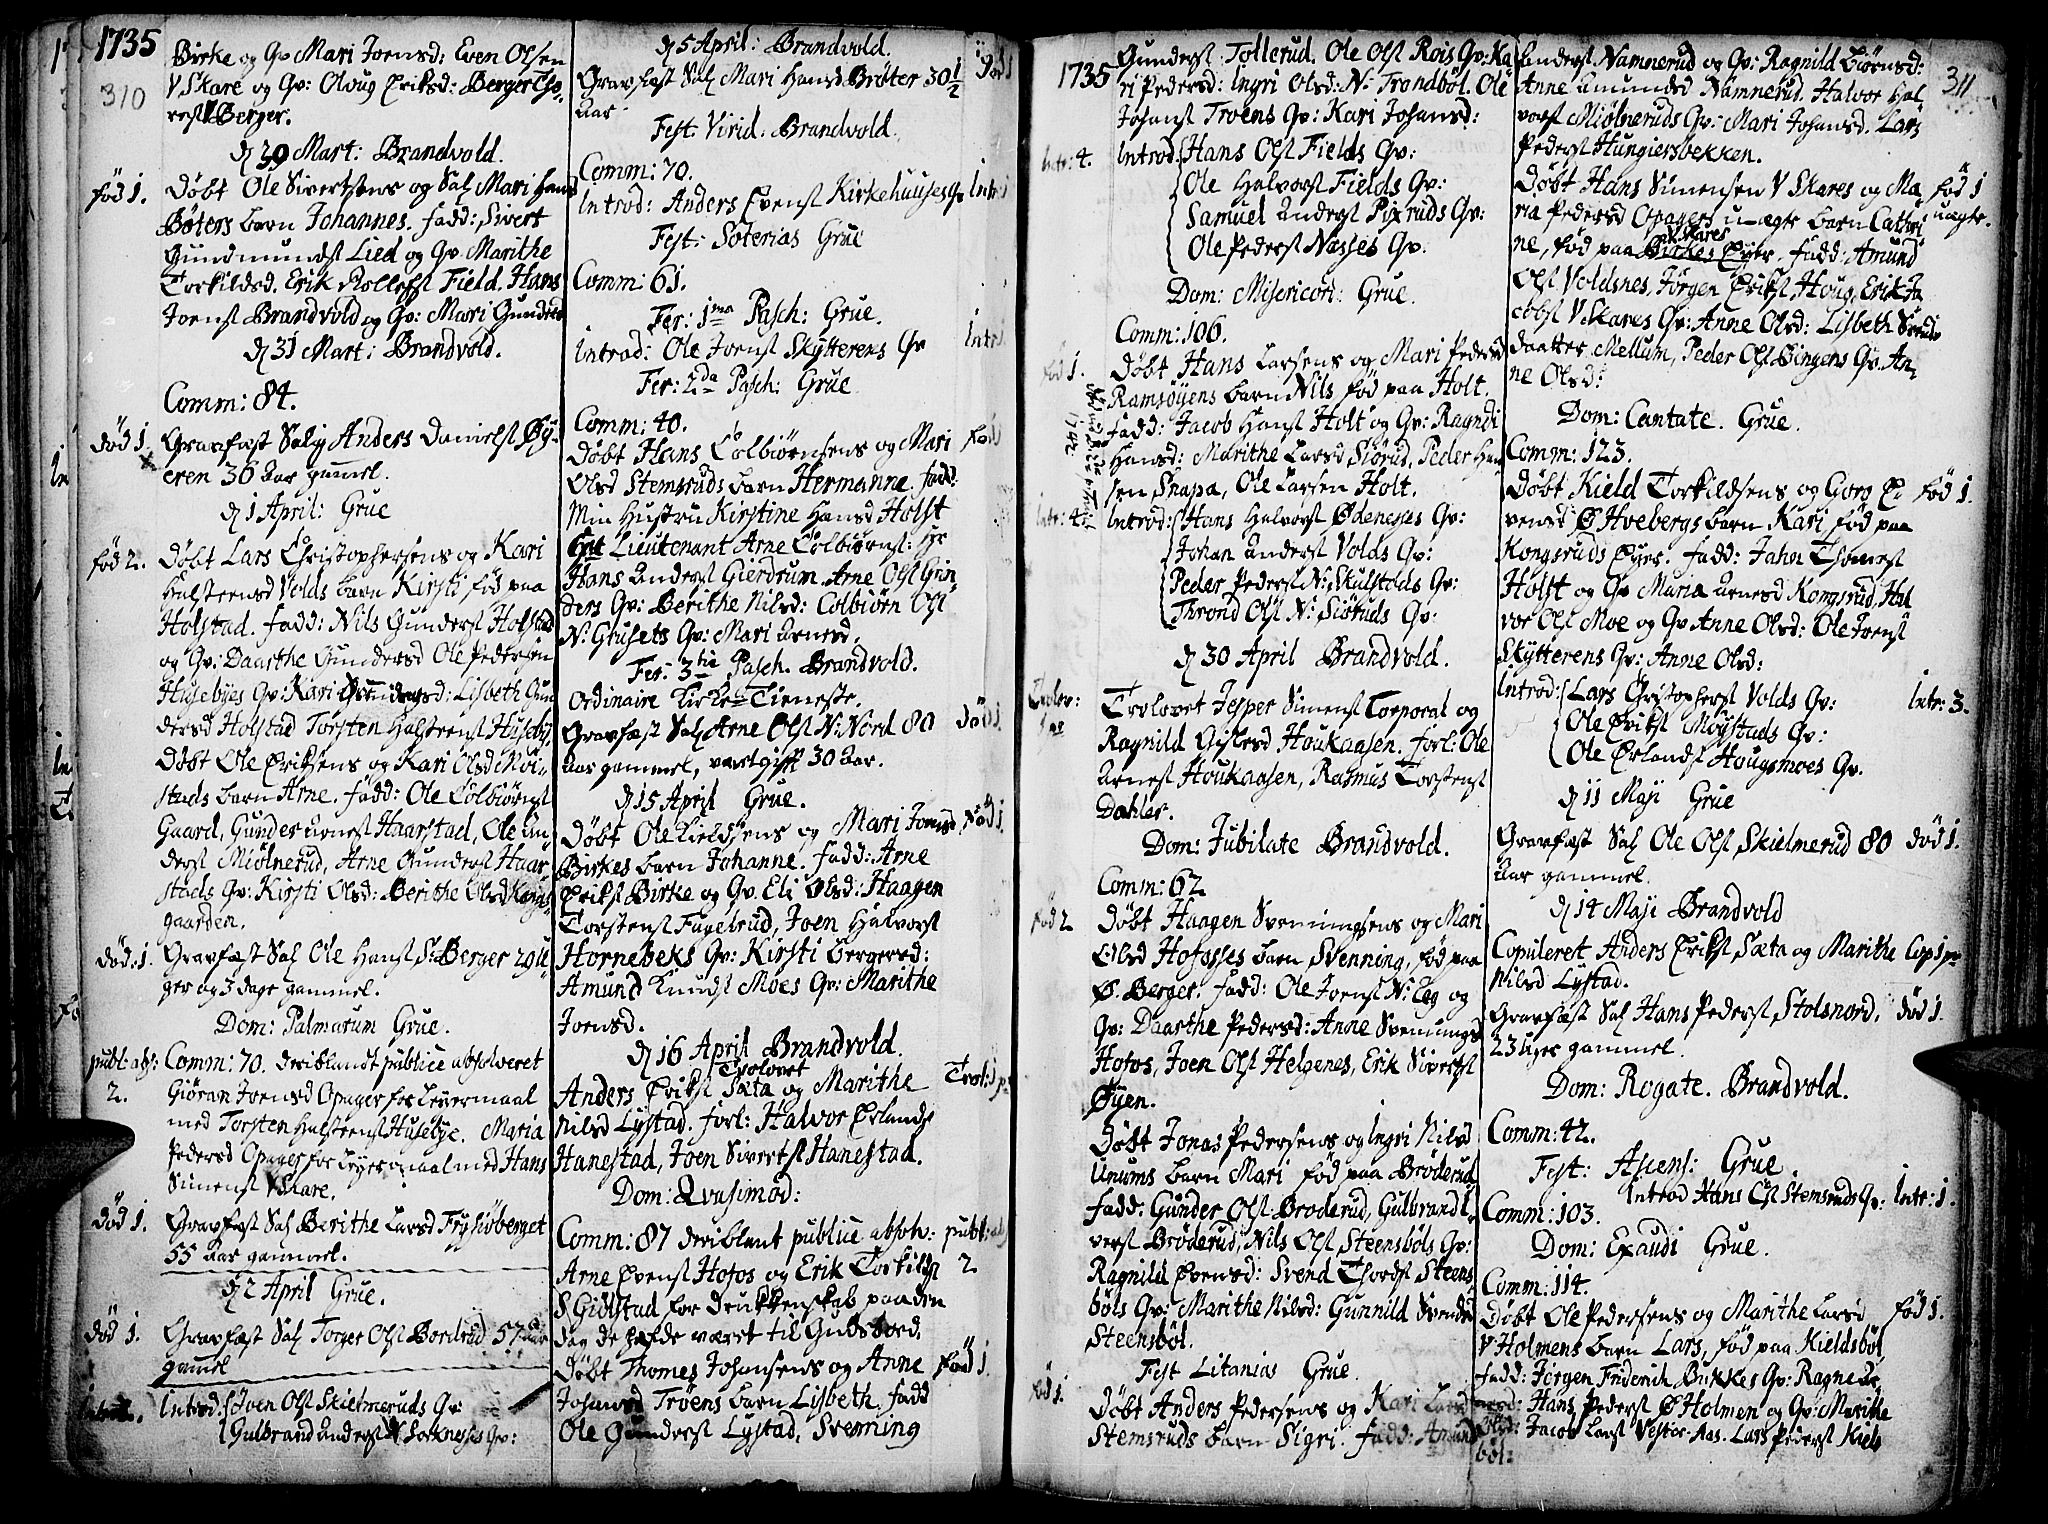 1735
310
Birke og Qv Mari Joensd: Even Olsen
V Skare og Qv: Oloug Eriksd: Berger Tho-
resl Berger.
d 29 Mart: Brandvold.
fød 1. Døbt Ole Sivertsens og Sal Mari Hansd
Bøters barn Johannes. fadd: Sivert
Gundmundsl Lied og Qv Marithe
Torkildsd. Erik Rollefsl Field. Hans
Joensl Brandvold og Qv: Mari Gundersd
d 31 Mart: Brandvold.
Comm: 84.
død 1. Gravfæst Salig Anders Danielsl Øy-
eren 36 aar gammel.
d 1 April: Grue
fød 2. Døbt Lars Christophersens og Kari
Halsteensd Volds barn Kirsti fød paa
Holstad. fadd: Nils Gundersl Holstad
og Qv: Daarthe Gundersd Ole Pedersen
Husebyes Qv: Kari Lisbeth Gun
dersd Holstad Torsten Halsteensl Huseby.
Døbt Ole Eriksens og Kari Olsd Møi-
stads barn Arne. fadd: Ole Colbiørnsl
Gaard, Gunder Arnesl Haarstad, Ole An
dersl Miølnerud, Arne Gundersl Haar
stads Qv: Kirsti Olsd: Berithe Olsd Kongs-
gaarden.
død: 1. Gravfæst Sal Ole Hansl S: Berger 29 u-
ger og 3 dage gammel.
Dom: Palmarum Grue.
publ: abs: Comm: 70. deriblandt publice absolveret
2. Giøran Joensd Opager for Leyermaal
med Torsten Halsteensl Husebye. Maria
Pedersd Opager for Leyermaal med Hans
Simensl V Skare.
død 1. Gravfæst Sal Berithe Larsd Frysiøberget
55 aar gammel.
d 2 April Grue.
død 1. Gravfæst Sal Torger Olsl Bordrud 57 aar
gamel
Introd: Joen Olsl Skielmeruds Qv:
Gulbrand Andersl N Soknesses Qv:
d 5 April: Brandvold.
Gravfæst Sal Mari Hansd Brøter 30 1/2
aar
Fest: Virid: Brandvold.
Comm: 70.
Introd: Anders Evensl Kirkehuuses Qv Intr: 1
Fest: Soterias Grue
Comm: 61.
Fer: 1ma Pasch: Grue.
Introd: Ole Joensl Skytterens Qv Intr.
Fer: 2da Pasch: Grue
Comm: 40.
Døbt Hans Colbiørnsens og Mari fød
Olsd Stemsruds barn Hermanne. fadd.
Min Hustru Kirstine Hansd Holst
Lieutenant Arne Colbiørnsl:
Hans Andersl Gierdrum. Arne Olsl Grin
ders Qv: Berithe Nilsd: Colbiørn Olsl
N: Grusets Qv: Mari Arnesd.
Fer: 3tie Pasch. Brandvold.
Ordinaire Kirke Tieneste.
Gravfæst Sal Arne Olsl N: Nord 80 død 1.
aar gammel, vært gift 30 aar.
d 15 April Grue.
Døbt Ole Kieldsens og Mari Joensd fød 1.
Birkes barn Johanne. fadd: Arne
Eriksl Birke og Qv Eli Olsd: Haagen
Torstensl Fugelrud, Joen Halvorsl
Hornebeks Qv: Kirsti Bergersd:
Amund Knudsl Moes Qv: Marithe
Joensd.
d 16 April Brandvold.
Trolovet
Anders Eriksl Sæta og Marithe Trol: 1 p:
Nilsd Lystad. forl: Halvor Erlandsl
Hanestad, Joen Sivertsl Hanestad.
Dom: Qvasimod:
Comm: 87 deriblant publice absolv: publ: abs
Arne Evensl Hofos og Erik Torkildsl 2.
S Giølstad for Drukkenskab paa den
dag de hafde været til Guds bord.
Døbt Thomes Johansens og Anne fød 1
Johansd Trøens barn Lisbeth. fadd
Ole Gundersl Lystad, Svenning
1735
Gundersl Tollerud. Ole Olsl Rois Qv: Ka
ri Pedersd: Ingri Olsd: N: Trondbøl. Ole
Johansl Troens Qv: Kari Johansd:
Intr: 4. Introd: Hans Olsl Fields Qv:
Ole Halvorsl Fields Qv:
Samuel Andersl Pixruds Qv:
Ole Pedersl Nasses Qv.
Dom: Misericori: Grue.
Comm: 106.
fød 1. Døbt Hans Larsens og Mari Pedersd
Ramsøyens barn Nils fød paa Holt.
fadd: Jacob Hansl Holt og Qv: Ragndi
Hansd: Marithe Larsd Siørud, Peder Han
sen Snapa, Ole Larsen Holt.
1742
Intr: 4. Introd: Hans Halvorsl Ødenesses Qv:
Johan Andersl Volds Qv:
Peder Pedersl N: Skulstads Qv:
Thrond Olsl N: Siøruds Qv:
d 30 April Brandvold.
Trolov: 1 pr
Trolovet Jesper Simensl Corporal og
Ragnild Gislesd Houkaasen. forl: Ole
Arnesl Houkaasen, Rasmus Torstensl
Dahler.
Dom: Jubilate Brandvold.
Comm: 62
fød 2 Døbt Haagen Svenningsens og Mari
Olsd Hofosses barn Svenning, fød paa
Ø. Berger. fadd: Ole Joensl N: Eeg og
Qv: Daarthe Pedersd: Anne Svenningsd
Hofos, Joen Olsl Helgenes, Erik Sivertsl
Øyen.
Døbt Jonas Pedersens og Ingri Nilsd
Unums barn Mari fød paa Brøderud
fadd: Gunder Olsl Broderud, Gulbrand I-
versl Brøderud, Nils Olsl Steensbøls Qv:
Ragnild Evensd: Svend Thordsl Steens
bøls Qv: Marithe Nilsd: Gunnild Svendsd
Steensbøl.
Fest Litanias Grue.
fød 1. Døbt Anders Pedersens og Kari Larsd
Stemsruds barn Sigri. fadd: Amund
311
Andersl Namnerud og Qv: Ragnild Biørnsd:
Anne Amundsd Namnerud. Halvor Hal-
vorsl Miølneruds Qv: Mari Johansd. Lars
Pedersl Hungiersbekken.
Døbt Hans Simensen V Skares og Ma fød 1
ria Pedersd Opagers uægte barn Cathri uægte.
V Skares
ne, fød paa Birkes Eyer. fadd: Amund
Olsl Voldsnes, Jørgen Eriksl Houg, Erik Ja
cobsl V Skares Qv: Anne Olsd: Lisbeth Svends
daatter Mellum, Peder Olsl Bingens Qv. An-
ne Olsd:
Dom: Cantate. Grue.
Comm: 123.
Døbt Kield Torkildsens og Goro E- fød 1.
vensd Ø Hvebergs barn Kari fød paa
Kongsruds Eyer. fadd: Jahn Thomesl
Holst og Qv Maria Arnesd Kongsrud, Hal
vor Olsl Moe og Qv Anne Olsd: Ole Joensl
Skytterens Qv: Anne Olsd:
Introd: Lars Christophersl Volds Qv: Intr: 3.
Ole Eriksl Moystads Qv:
Ole Erlandsl Hougsmoes Qv.
d 11 Maji Grue
Gravfæst Sal Ole Olsl Skielmerud 80 død 1.
aar gammel.
d 14 Maji Brandvold
Copuleret Anders Eriksl Sæta og Marithe Cop 1 pr
Nilsd Lystad.
Gravfæst Sal Hans Pedersl Stolsnord, død 1.
23 uger gammel.
Dom: Rogate. Brandvold.
Comm: 42.
Fest: Ascens: Grue.
Introd Hans Olsl Stemsruds Qv: Intr: 1.
Comm: 103.
Dom: Exaudi Grue.
Comm: 114.
Døbt Ole Pedersens og Marithe Larsd fød 1.
V Holmens barn Lars, fød paa Kieldsbøl,
fadd: Jørgen Friderich Bukkes Qv: Ragne
Hans Pedersl Ø Holmen og Qv: Marithe
Olsd: Jacob Larsl Vestor-Aas. Lars Pedersl Kiels
bøl: